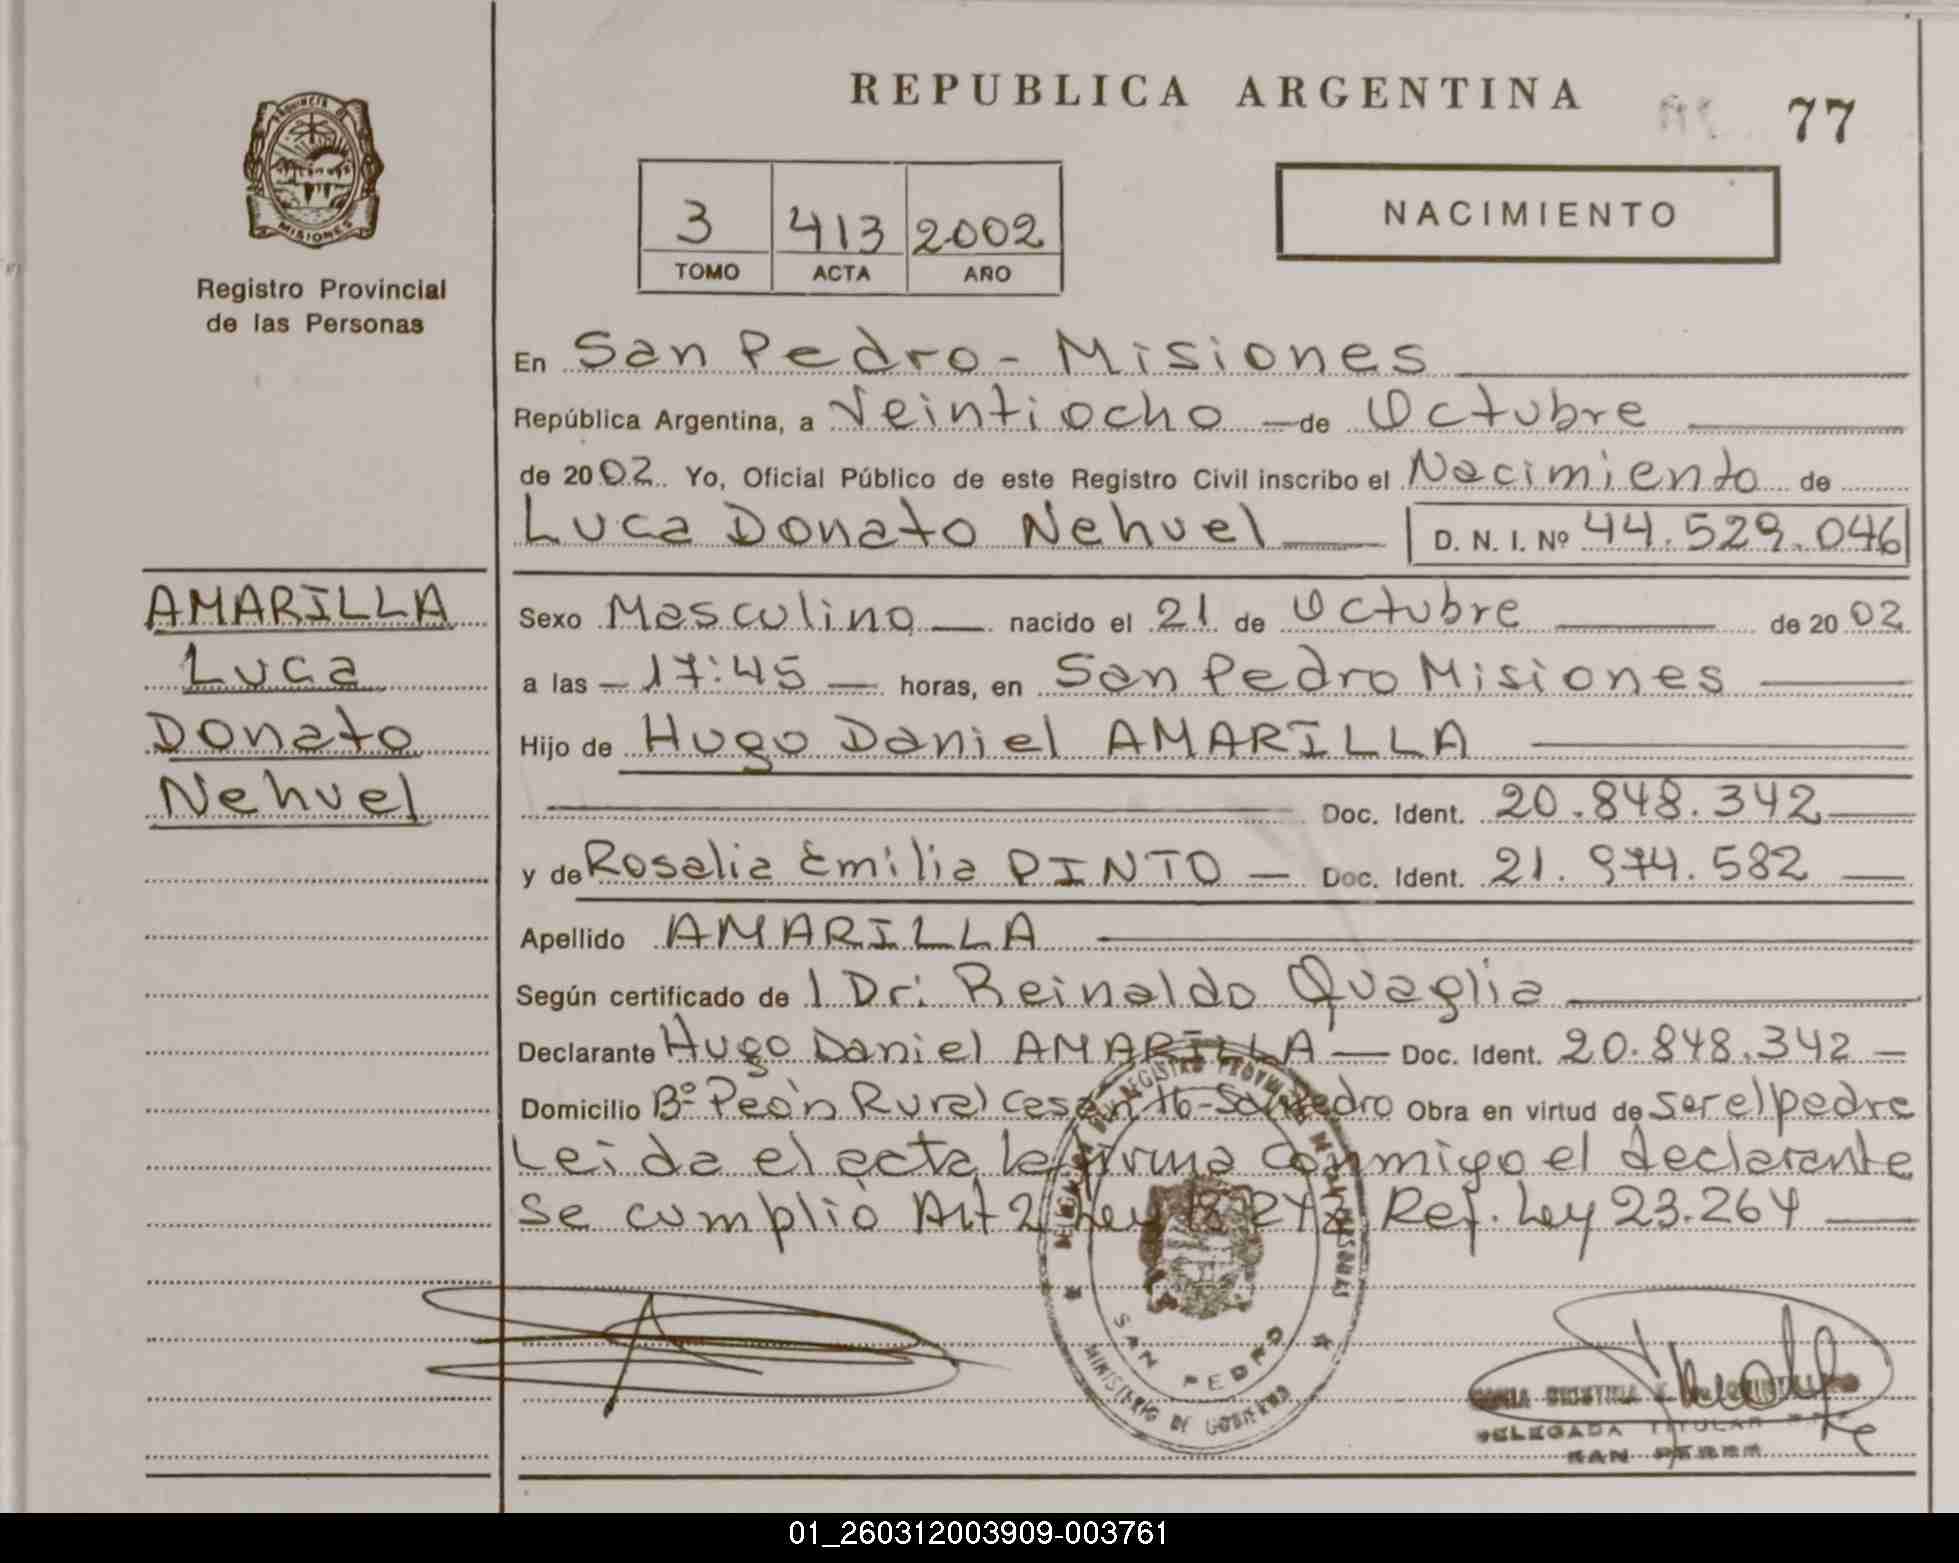 REPUBLICA ARGENTINA
77
PROVINCIA
MISIONES
Registro Provincial
de las Personas
3 413 2002
TOMO ACTA AÑO
NACIMIENTO
En San Pedro - Misiones
República Argentina, a Veintiocho de Octubre
de 2002. Yo, Oficial Público de este Registro Civil inscribo el Nacimiento de
Luca Donato Nehuel D. N. I. Nº 44.529.046
AMARILLA
Luca
Donato
Nehuel
Sexo Masculino nacido el 21 de Octubre de 2002
a las 17:45 horas, en San Pedro Misiones
Hijo de Hugo Daniel AMARILLA
Doc. Ident. 20.848.342
y de Rosalia Emilia PINTO Doc. Ident. 21.974.582
Apellido AMARILLA
Según certificado de 1 Dr: Reinaldo Quaglia
Declarante Hugo Daniel AMARILLA Doc. Ident. 20.848.342
Domicilio Bº Peón Rural Casa nº 16 - San Pedro Obra en virtud de ser el padre
Leida el acta la firma conmigo el declarante
Se cumplió Art 2 Ley 18.248 Ref. Ley 23.264
SAN PEDRO
MINISTERIO DE GOBIERNO
DELEGADA TITULAR
SAN PEDRO
01_260312003909-003761